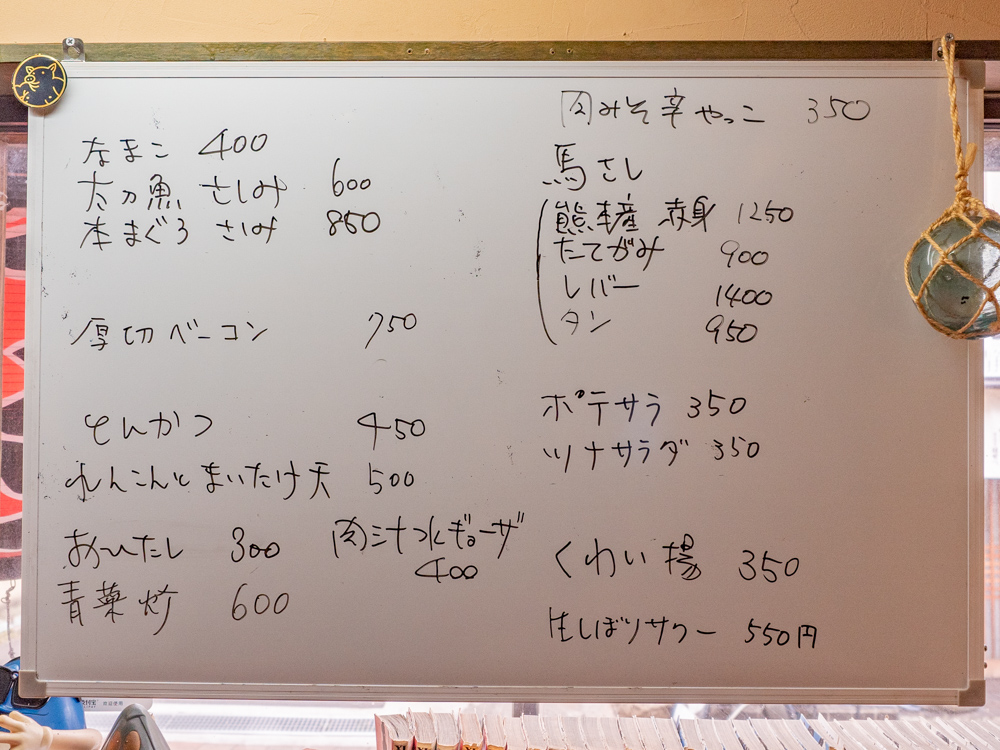 なまこ 400
太刀魚 さしみ 600
本まぐろ さしみ 850
厚切ベーコン 750
とんかつ 450
れんこんとまいたけ天 500
おひたし 300
青菜炒 600
肉汁水ギョーザ
400
肉みそ辛やっこ 350
馬さし
熊本産 赤身 1250
たてがみ 900
レバー 1400
タン 950
ポテサラ 350
ツナサラダ 350
くわい揚 350
生しぼりサワー 550円